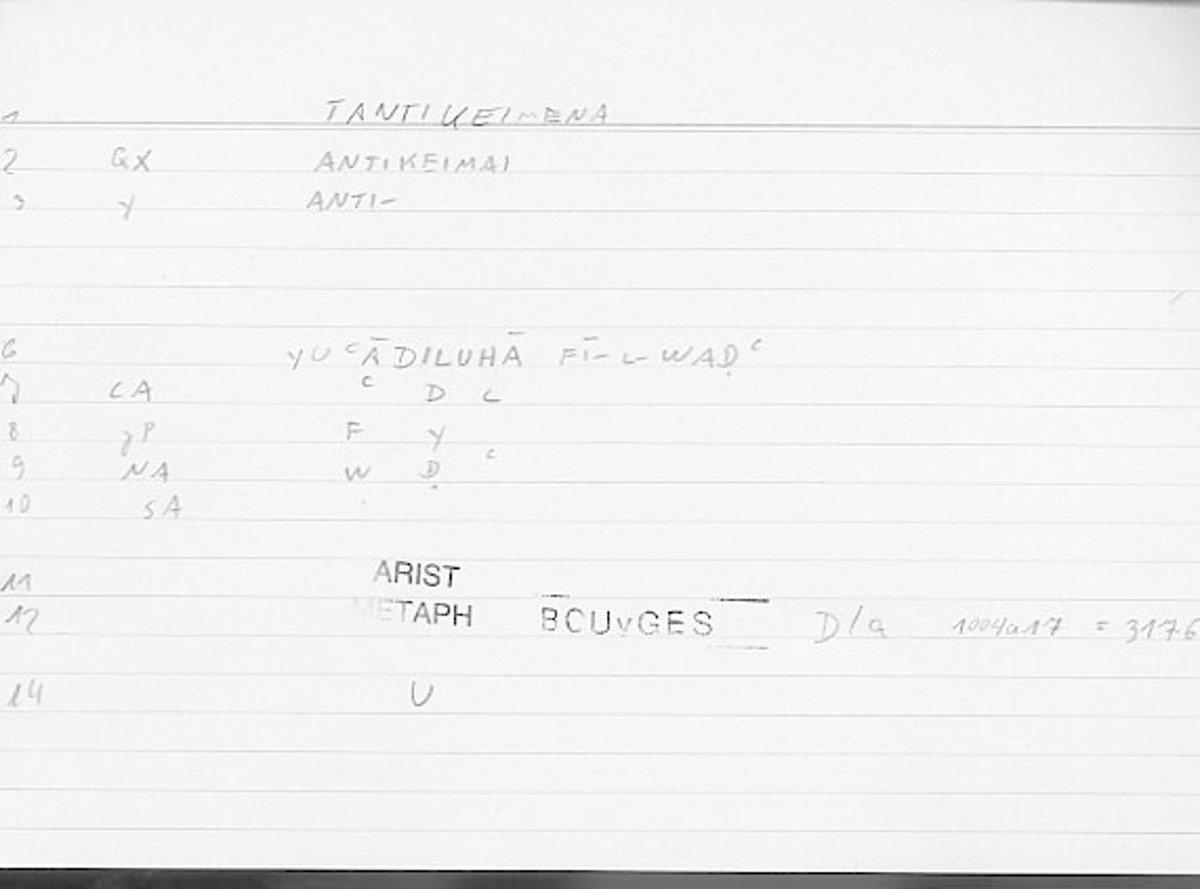 1 TANTIKEIMENA
2 GX ANTIKEIMAI
3 Y ANTI-
6 YUᶜĀDILUHĀ FĪ-L-WAḌᶜ
7 CA ᶜ D L
8 gP F Y
9 NA W Ḍ ᶜ
10 SA
11 ARIST
12 METAPH BCUvGES D/a 1004a17 = 3176
14 U